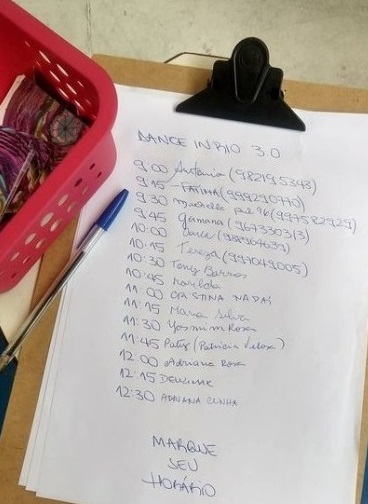 DANCE IN RIO 3.0
9:00 Antonia (982195343)
9:15 - FATIMA (999290770)
9:30 (997582929)
9:45 (967330313)
10:00
10:15 Tereza (997049005)
10:30 Tony Barros
10:45
11:00 CRISTINA
11:15 Maria Silva
11:30 Yasmim Rosa
11:45 Paty (Patricia Veloso)
12:00 Adriana Rosa
12:15
12:30 ADRIANA CUNHA
MARQUE
SEU
HORÁRIO